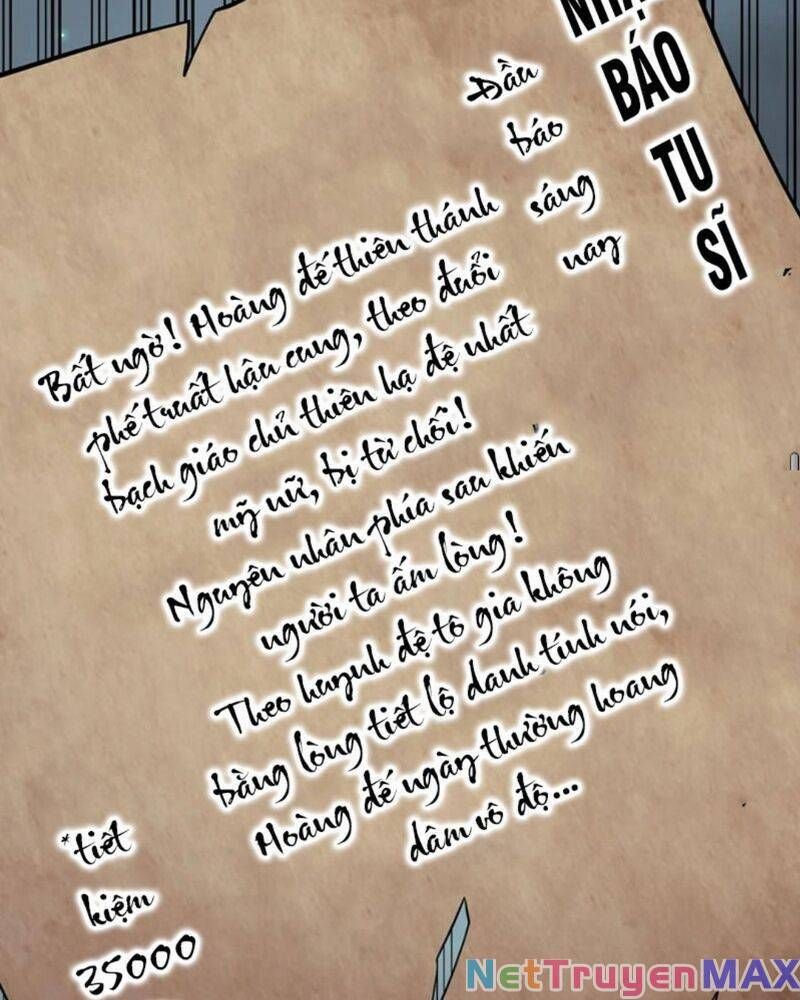 BÁO
TU
SĨ
Đầu
báo
sáng
nay
Bất ngờ! Hoàng đế thiên thánh
phế truất hậu cung, theo đuổi
bạch giáo chủ thiên hạ đệ nhất
mỹ nữ, bị từ chối!
Nguyên nhân phía sau khiến
người ta ấm lòng!
Theo huynh đệ tô gia không
bằng lòng tiết lộ danh tính nói,
Hoàng đế ngày thường hoang
dâm vô độ...
*tiết
kiệm
35000
NETTRUYENMAX